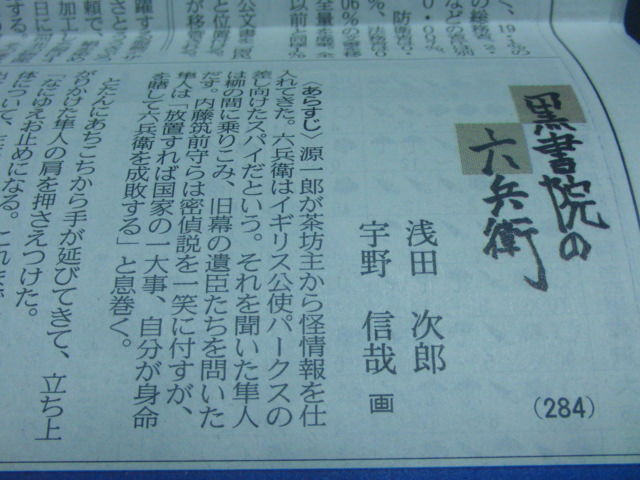 黒書院の
六兵衛
浅田 次郎
宇野 信哉 画
(284)
〈あらすじ〉源一郎が茶坊主から怪情報を仕
入れてきた。六兵衛はイギリス公使パークスの
差し向けたスパイだという。それを聞いた隼人
は柳の間に乗りこみ、旧幕の遺臣たちを問いた
だす。内藤筑前守らは密偵説を一笑に付すが、
隼人は「放置すれば国家の一大事、自分が身命
を賭して六兵衛を成敗する」と息巻く。
とたんにあちこちから手が延びてきて、立ち上
がりかけた隼人の肩を押さえつけた。
「なにゆえお止めになる。これまで